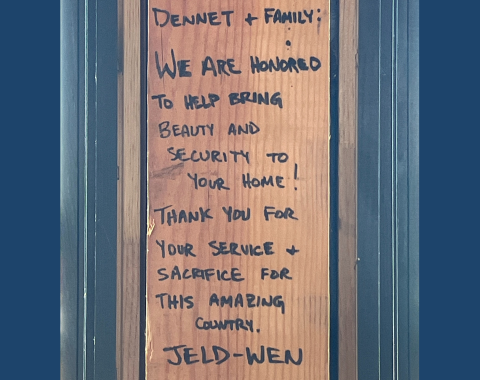 DENNET + FAMILY:
WE ARE HONORED
TO HELP BRING
BEAUTY AND
SECURITY TO
YOUR HOME!
THANK YOU FOR
YOUR SERVICE +
SACRIFICE FOR
THIS AMAZING
COUNTRY.
JELD-WEN